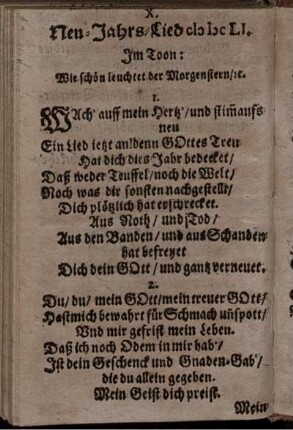 X.
Neu-Jahrs-Lied cIↃ IↃc LI.
Im Toon:
Wie schön leuchtet der Morgenstern/ꝛc.
1.
WAch' auff mein Hertz'/und stim̃aufs
neu
Ein Lied jetzt an!denn GOttes Treu
Hat dich dies Jahr bedecket/
Daß weder Teuffel/noch die Welt/
Noch was dir sonsten nachgestellt/
Dich plötzlich hat erschrecket.
Aus Noth/ und Tod/
Aus den Banden/ und aus Schanden
hat befreyet
Dich dein GOtt/ und gantz verneuet.
2.
Du/ du/ mein GOtt/mein treuer GOtt/
Hast mich bewahrt für Schmach uñ spott/
Vnd mir gefrist mein Leben.
Daß ich noch Odem in mir hab'/
Ist dein Geschenck und Gnaden-Gab'/
die du allein gegeben.
Mein Geist dich preist.
Mein